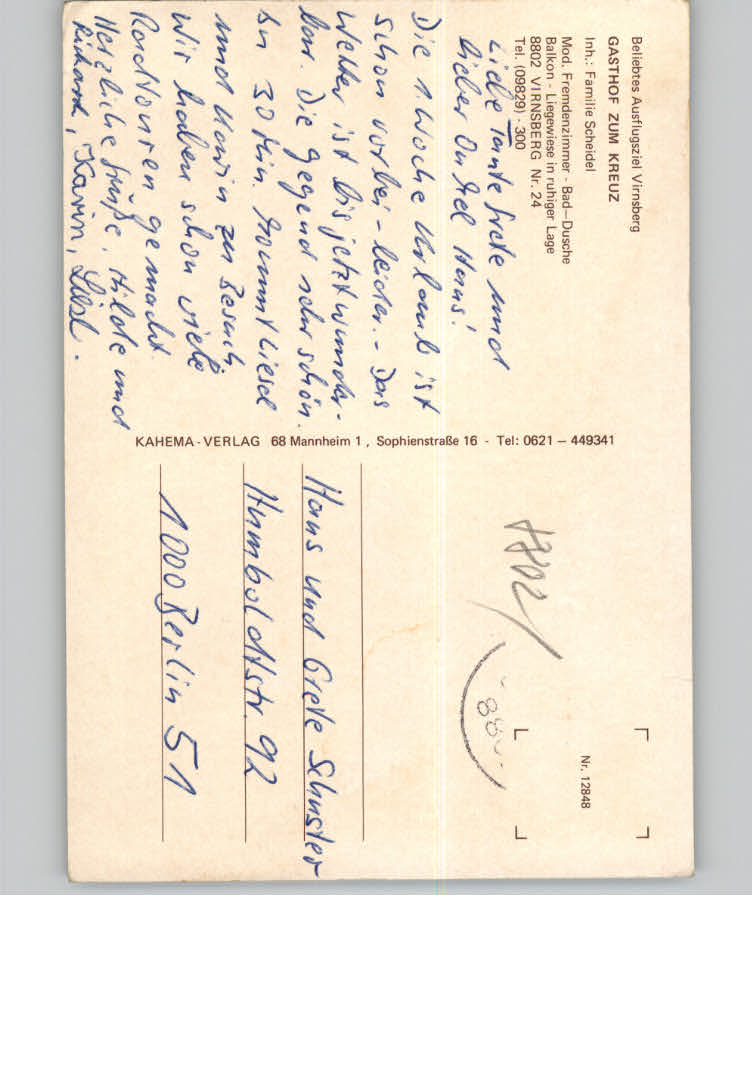 Beliebtes Ausflugsziel Virnsberg
GASTHOF ZUM KREUZ
Inh.: Familie Scheidel
Mod. Fremdenzimmer - Bad-Dusche
Balkon - Liegewiese in ruhiger Lage
8802 VIRNSBERG Nr. 24
Tel. (09829) - 300
Liebe Tante Grete und
lieber Onkel Hans!
Die 1. Woche Urlaub ist
schon vorbei - leider. - Das
Wetter ist bis jetzt wunder-
bar. Die Gegend sehr schön.
In 30 Min. kommt Liesel
und Karin zu Besuch
Wir haben schon viele
Radtouren gemacht.
Herzliche Grüße. Hilde und
Richard, Karin, Liesl.
KAHEMA-VERLAG 68 Mannheim 1, Sophienstraße 16 - Tel: 0621 – 449341
Nr. 12848
88
8802
Hans und Grete Schuster
Humboldtstr. 92
1000 Berlin 51